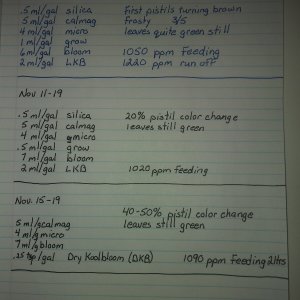 .5 ml/gal silica first pistils turning brown
5 ml/gal calmag frosty 3/5
4 ml/gal micro leaves quite green still
1 ml/gal grow
6 ml/gal bloom 1050 ppm feeding
2 ml/gal LKB 1220 ppm run off
Nov. 11-19
.5 ml/gal silica 20% pistil color change
5 ml/gal calmag leaves still green
4 ml/gal micro
.5 ml/gal grow
7 ml/gal bloom
2 ml/gal LKB 1020 ppm feeding
Nov. 15-19
40-50% pistil color change
5 ml/g calmag leaves still green
4 ml/g micro
7 ml/g bloom
.25 tsp/gal Dry Koolbloom (DKB) 1090 ppm feeding 2ltrs